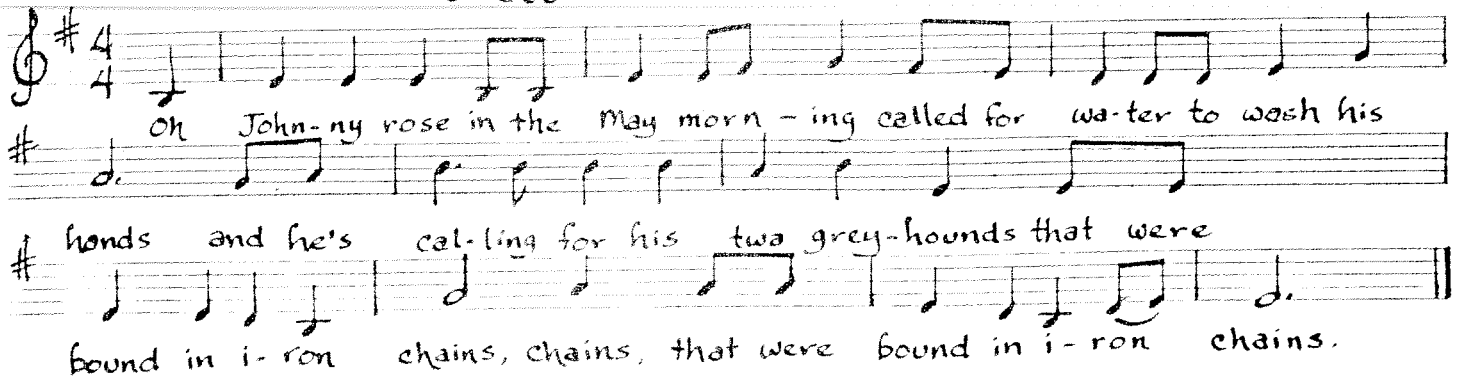 4
4
Oh John-ny rose in the May morn - ing called for wa-ter to wash his
hands and he's cal-ling for his twa grey-hounds that were
bound in i-ron chains, chains, that were bound in i-ron chains.